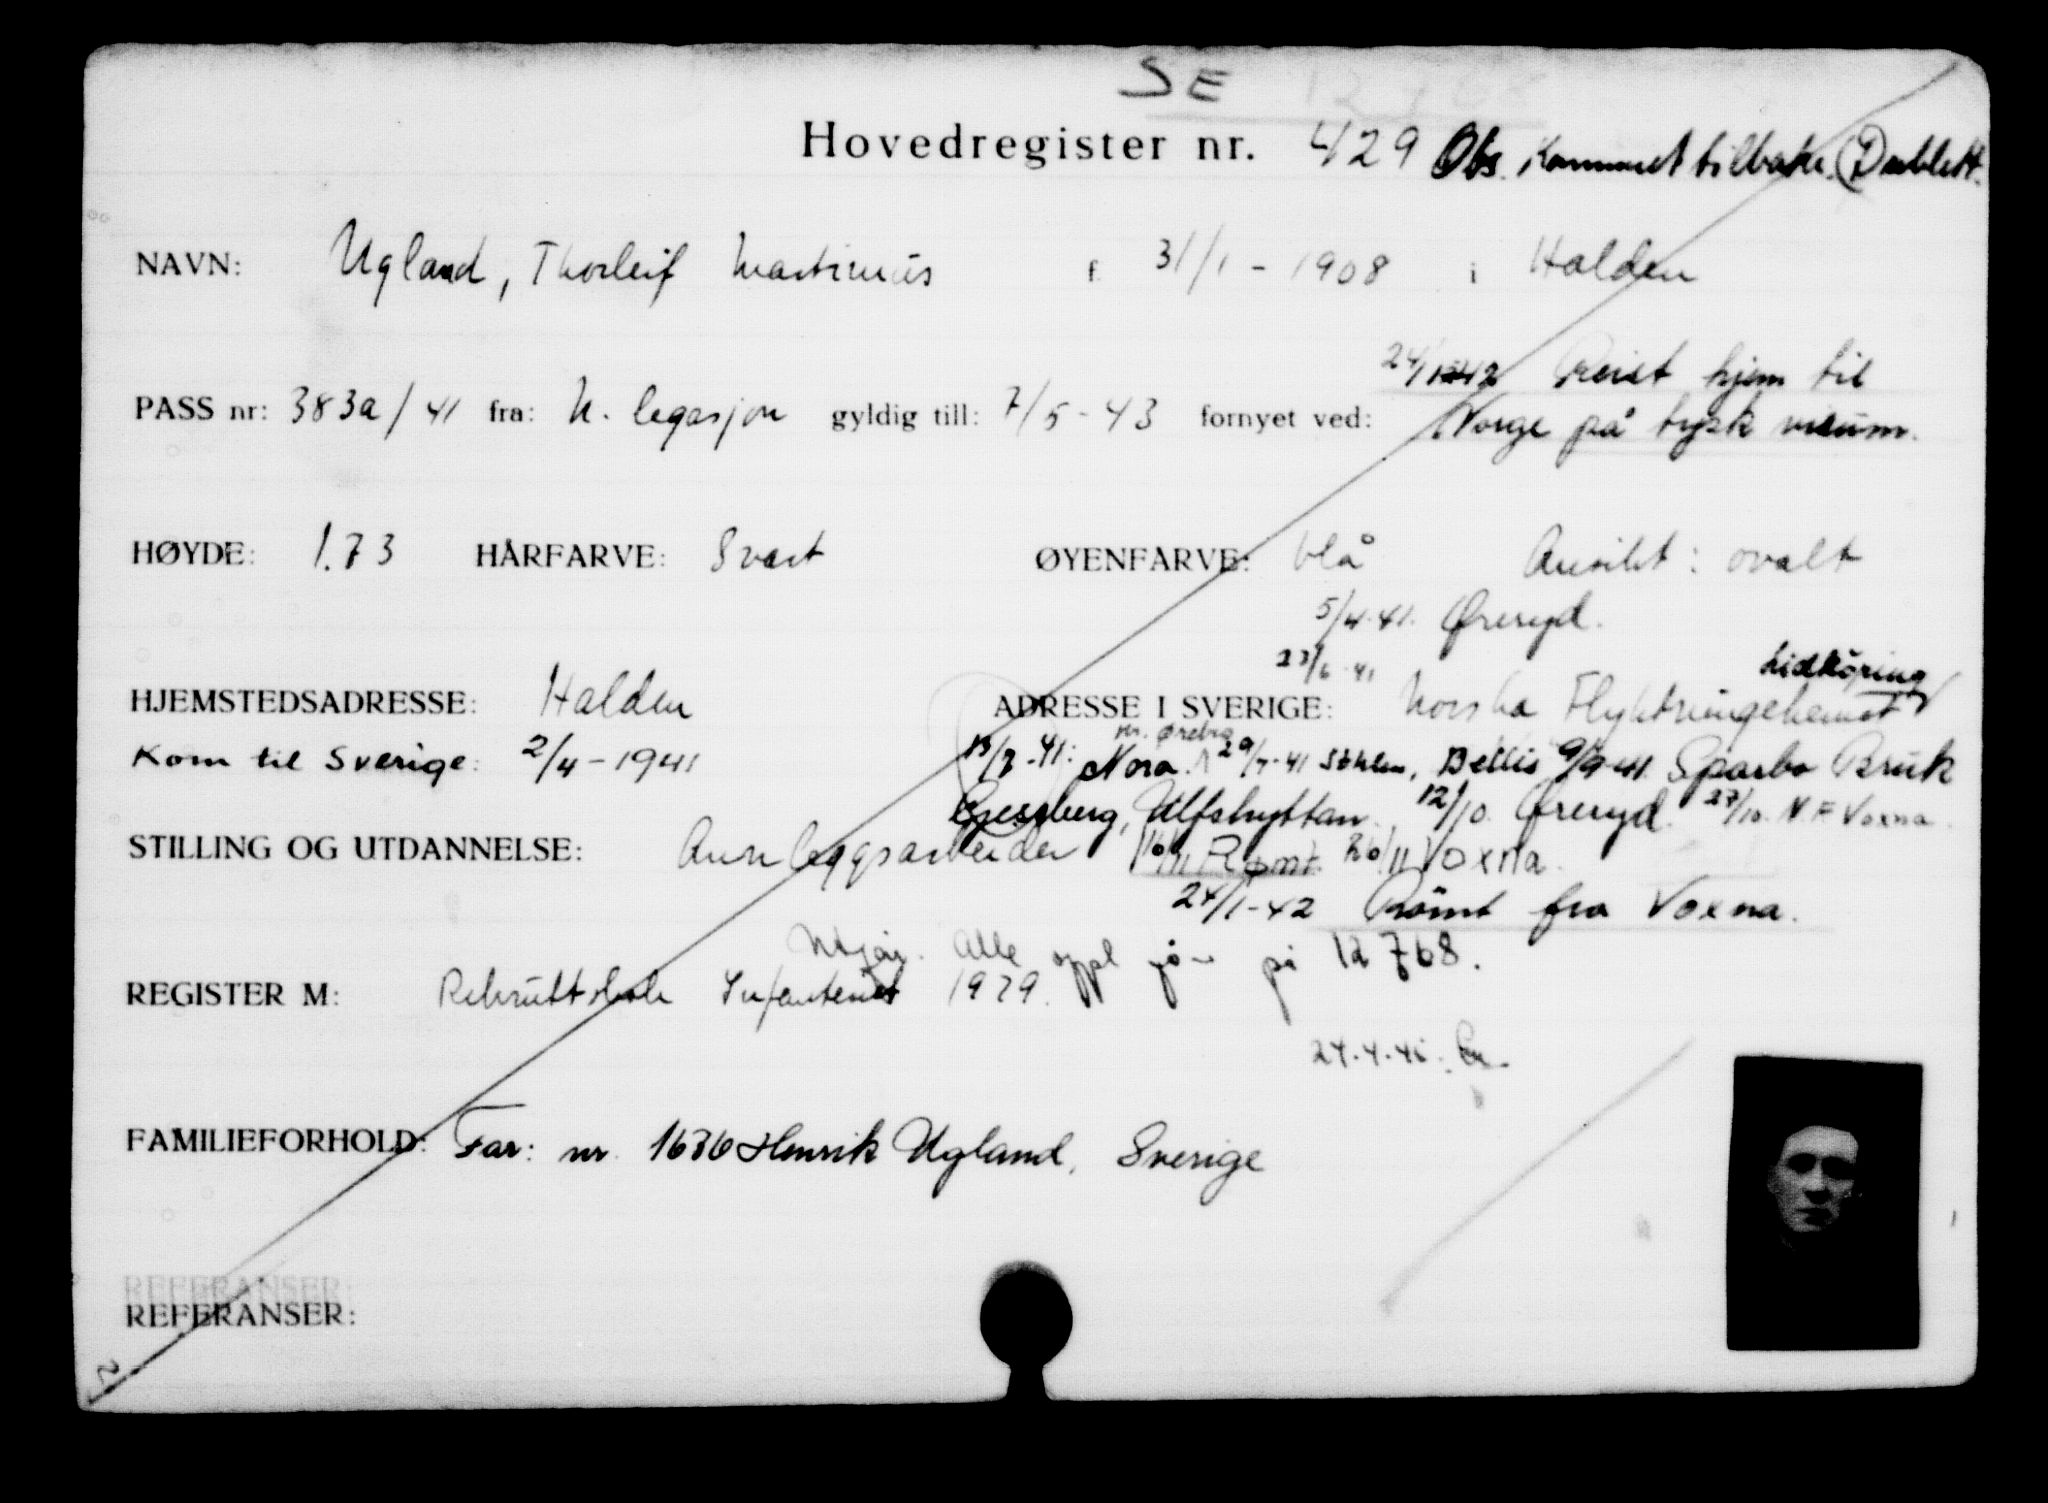 SE
Hovedregister nr. 429 Obs. Kommet tilbake. Dublett.
NAVN: Ugland, Thorleif Martinius f. 31/1 - 1908 i Halden
24/1 42 Reist hjem til
PASS nr: 383a/41 fra: N. legasjon gyldig till: 7/5-43 fornyet ved: Norge på tysk visum.
HØYDE: 1.73 HÅRFARVE: Svart ØYENFARVE: blå Ansikt: ovalt
5/4.41. Øreryd.
23/6.41 Lidköping
HJEMSTEDSADRESSE: Halden ADRESSE I SVERIGE: Norska Flyktningehemmet
nr. Ørebro
Kom til Sverige: 2/4-1941 13/7-41: Nora. 29/7-41 Sthlm, Bellis 9/9 41. Sparbo Bruk
Ulfshyttan. 12/10. Øreryd. 27/10. N F Voxna.
STILLING OG UTDANNELSE: Annleggsarbeider 16/11 Rømt. 26/11 Voxna.
24/1-42 Römt fra Voxna.
Utgår. Alle oppl på 12768.
REGISTER M: Rekruttskole Infanteriet 1929.
24.4.45.
FAMILIEFORHOLD: Far: nr. 1636 Henrik Ugland, Sverige
REFERANSER:
REFERANSER: